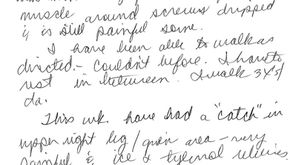 muscle around screws dripped
& is still painful some.
I have been able to walk as
directed - couldn't before. I have to
rest in between. I walk 3x's/
da.
This wk. have had a "catch" in
upper right leg/groin area - very
painful & ice & tylenol relieves